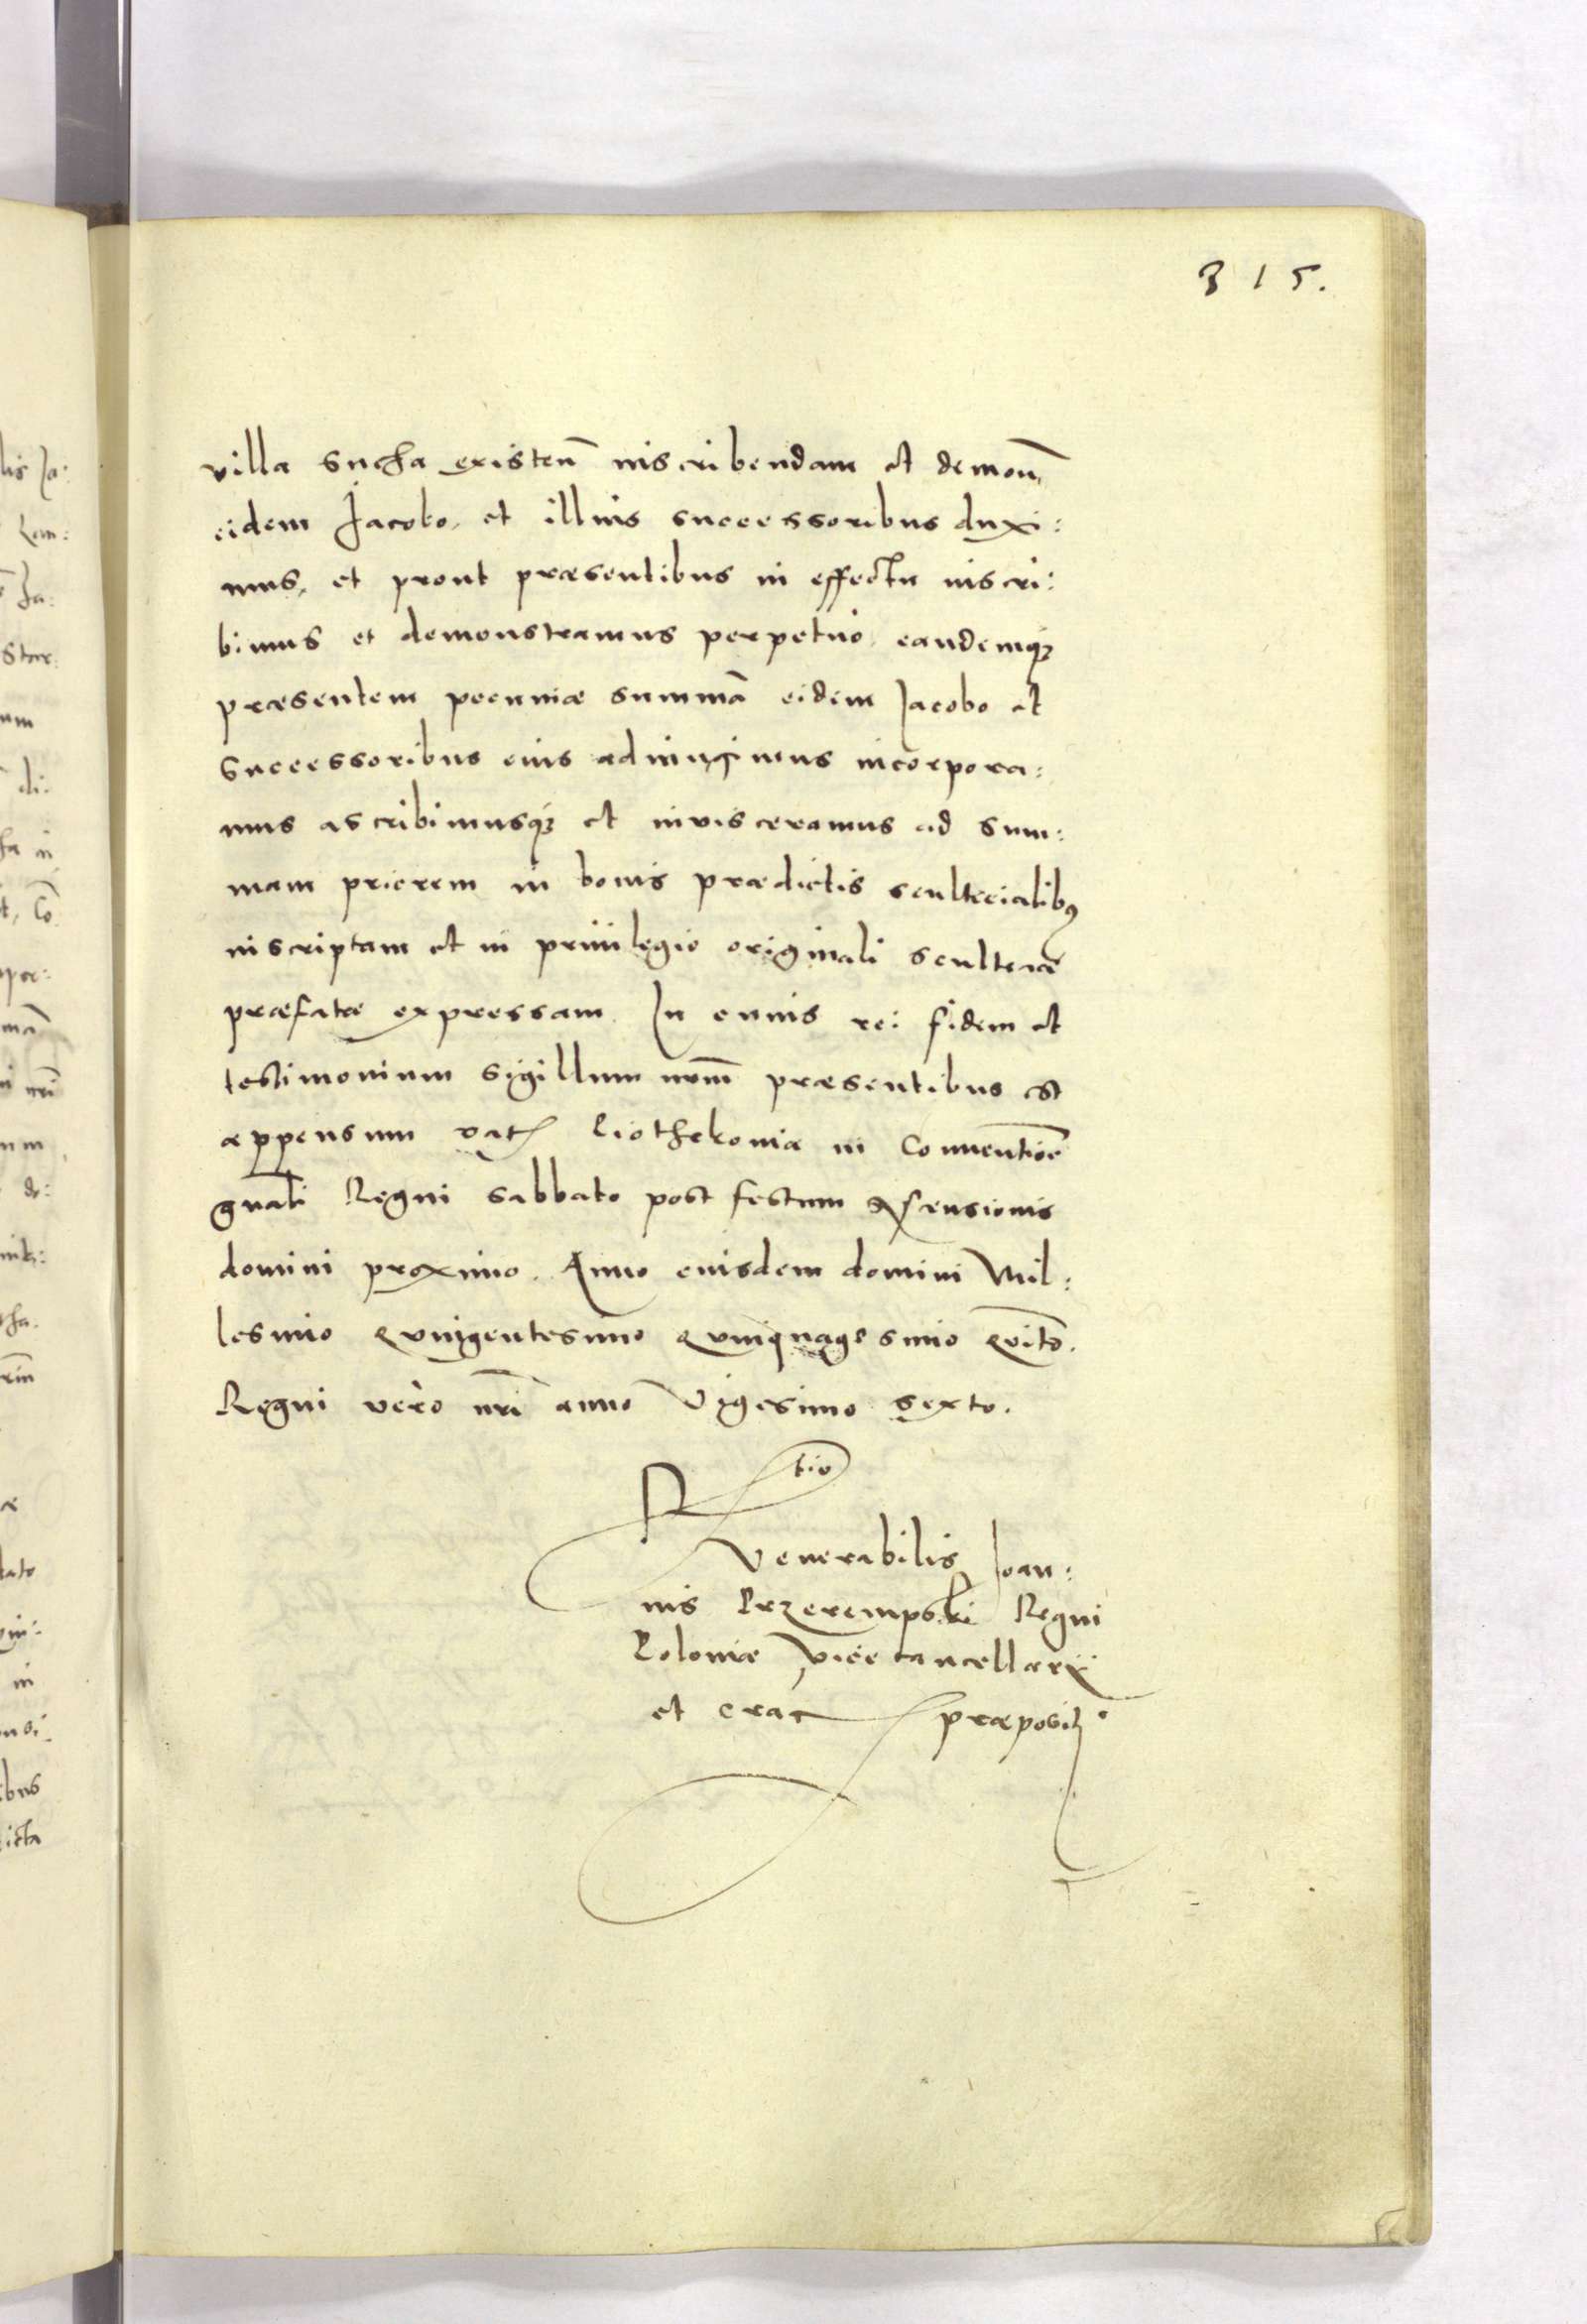 315.
villa Sucha existeñ inscribendam et demoñ
eidem Jacobo, et illius successoribus duxi:
mus, et prout præsentibus in effectu inscri:
bimus et demonstramus perpetuo, eandemqз
præsentem pecuniæ summã eidem Jacobo et
successoribus eius adiungimus incorpora:
mus ascribimusqз et invisceramus ad sum:
mam priorem in bonis prædictis scultecialibꝰ
inscriptam et in privilegio originali scultetiæ
præfatæ expressam. In cuius rei fidem et
testimonium sigillum nrm̃ præsentibus est
appensum Dat Piothrkoviæ in Conventiõe
gnali Regni sabbato post festum Ascensionis
domini proximo. Anno eiusdem domini Mil:
lesimo Quingentesimo Quinquagesimo Qvitõ.
Regni verò nrĩ anno Vigesimo sexto.
Rtio
Venerabilis Joan:
nis Przerempski Regni
Poloniæ Vicecancellarij
et crac præposit